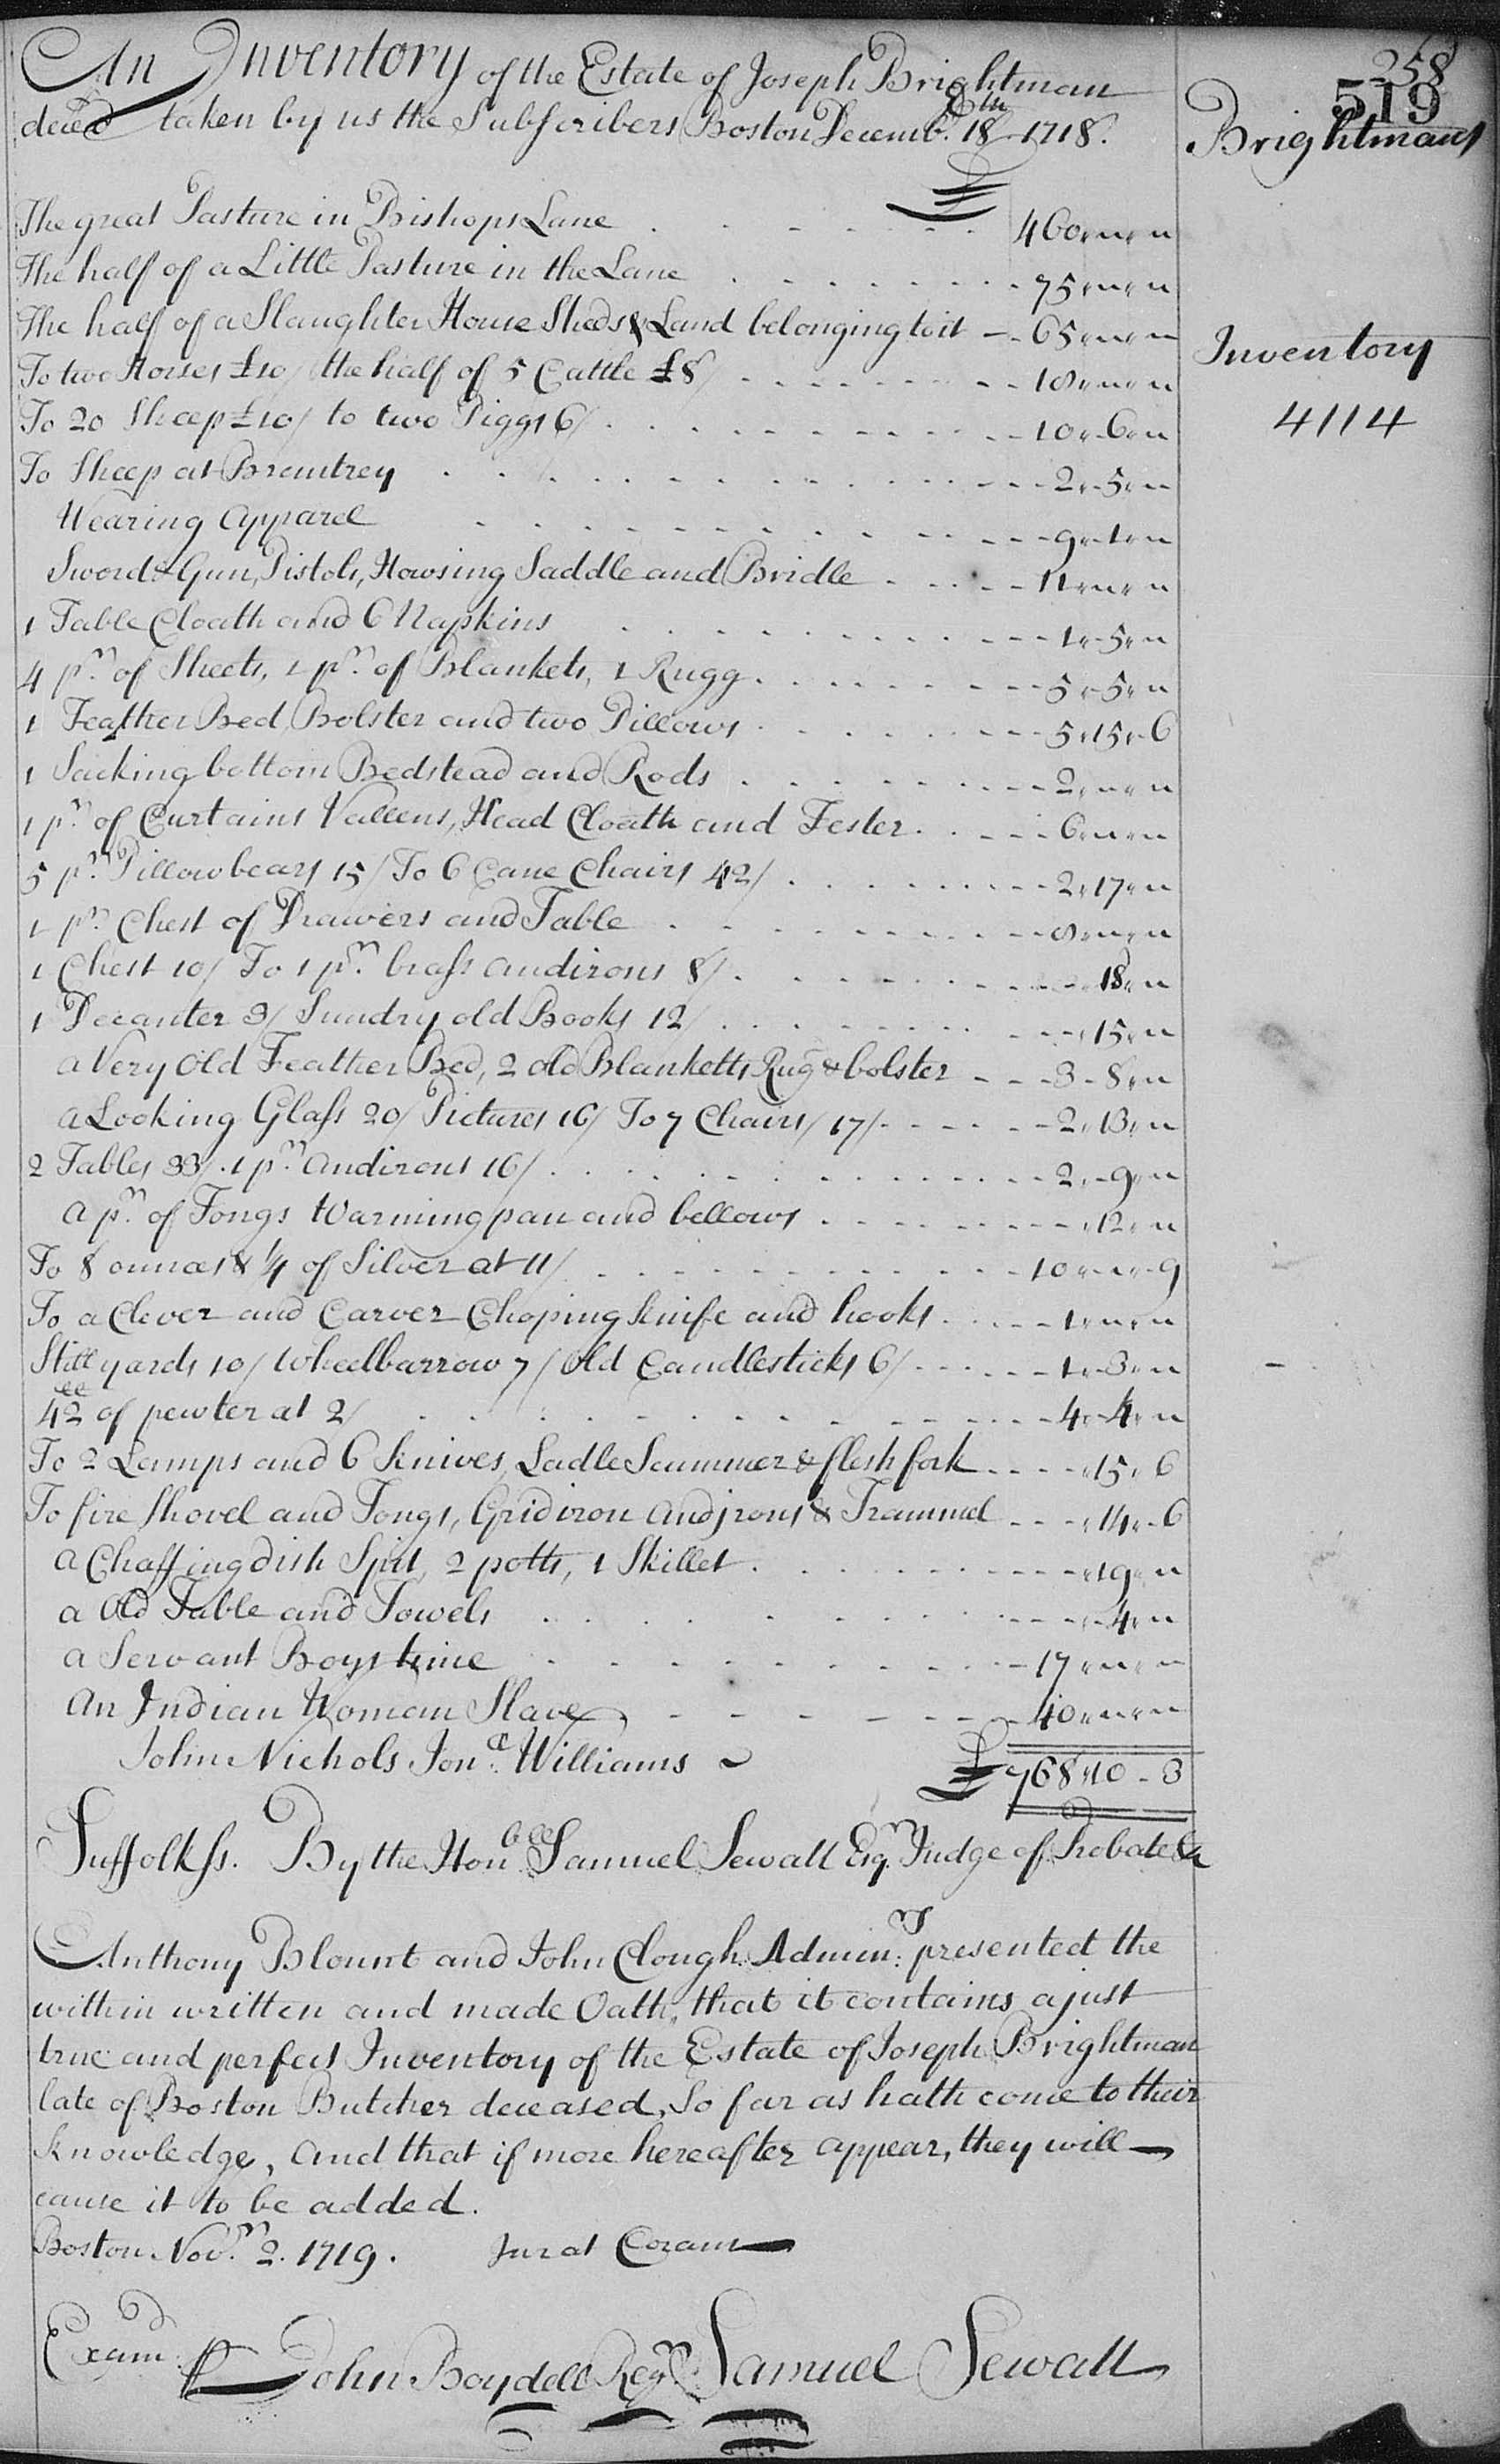 An Inventory of the Estate of Joseph Brightman
deced taken by us the Subscribers Boston Decemb.r 18th 1718.
258
519
Brightmans
Inventory
4114
£
The great Pasture in Bishops Lane 460"-"-"
The half of a Little Pasture in the Lane 75"-"-"
The half of a Slaughter House Sheds & Land belonging to it 65"-"-"
To two Horses £10/ the half of 5 Cattle £8/ 18"-"-"
To 20 Sheep £10/ to two Piggs 6/ 10"-6"-"
To Sheep at Brantrey 2"-5"-"
Wearing Apparel 9"-1"-"
Sword & Gun, Pistols, Howsing Saddle and Bridle 11"-"-"
1 Table Cloath and 6 Napkins 1"-5"-"
4 pr. of Sheets, 1 pr. of Blankets, 1 Rugg 5"-5"-"
1 Feather Bed Bolster and two Pillows 5"15"-6
1 Sacking bottom Bedstead and Rods 2"-"-"
1 pr. of Curtains Vallens, Head Cloath and Tester 6"-"-"
5 pr. Pillowbears 15/ To 6 Cane Chairs 42/ 2"17"-"
1 pr. Chest of Drawers and Table 8"-"-"
1 Chest 10/ To 1 pr. brass andirons 8/ 18"-"
1 Decanter 3/ Sundry old Books 12/ 15"-"
a Very Old Feather Bed, 2 old Blanketts Rug & bolster 3-8"-"
a Looking Glass 20/ Pictures 16/ To 7 Chairs/ 17/ 2"13"-"
2 Tables 33/. 1 pr. Andirons 16/ 2"-9"-"
a pr. of Tongs Warming pan and bellows "12"-"
To 8 ounces & 1/4 of Silver at 11/ 10"-"-9
To a Clever and Carver Choping knife and hooks 1"-"-"
Still yards 10/ Wheelbarrow 7/ Old Candlesticks 6/ 1"-3"-"
42 ll of pewter at 2/ 4"-4"-"
To 2 Lamps and 6 knives, Ladle Scummer & flesh fork "15"6
To fire Shovel and Tongs, Gridiron Andjrons & Trammel "14"-6
a Chaffingdish Spit, 2 potts, 1 Skillet "19"-"
a Old Table and Towels "4"-"
a Servant Boys time 17"-"-"
An Indian Woman Slave 40"-"-"
John Nichols Jona. Williams £768"10-3
Suffolk ss. By the Honble Samuel Sewall Esqr. Judge of Probate &a
Anthony Blount and John Clough Adminrs. presented the
within written and made Oath, that it contains a just
true and perfect Inventory of the Estate of Joseph Brightman
late of Boston Butcher deceased, So far as hath come to their
knowledge, and that if more hereafter appear, they will
cause it to be added.
Boston Novr. 2. 1719. Jurat Coram
Examd. p John Boydell Regr. Samuel Sewall